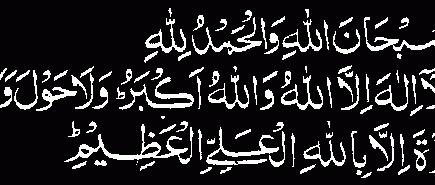 سُبْحَانَ اللهِ وَالْحَمْدُ لِلّٰهِ
لَآ اِلٰهَ اِلَّا اللهُ وَاللهُ اَكْبَرُ وَلَا حَوْلَ وَ
وَّةَ اِلَّا بِاللهِ الْعَلِيِّ الْعَظِيْمِ